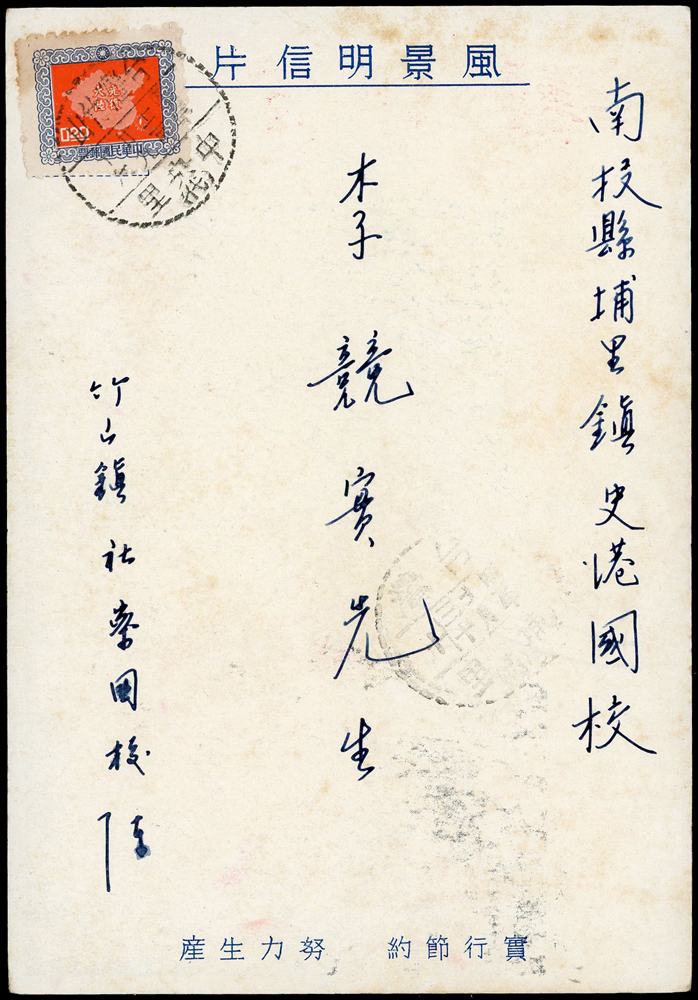 風景明信片
南投縣埔里鎮史港國校
李競實先生
竹山鎮社寮国校 陳
實行節約 努力生產
0.20
中華民國郵票